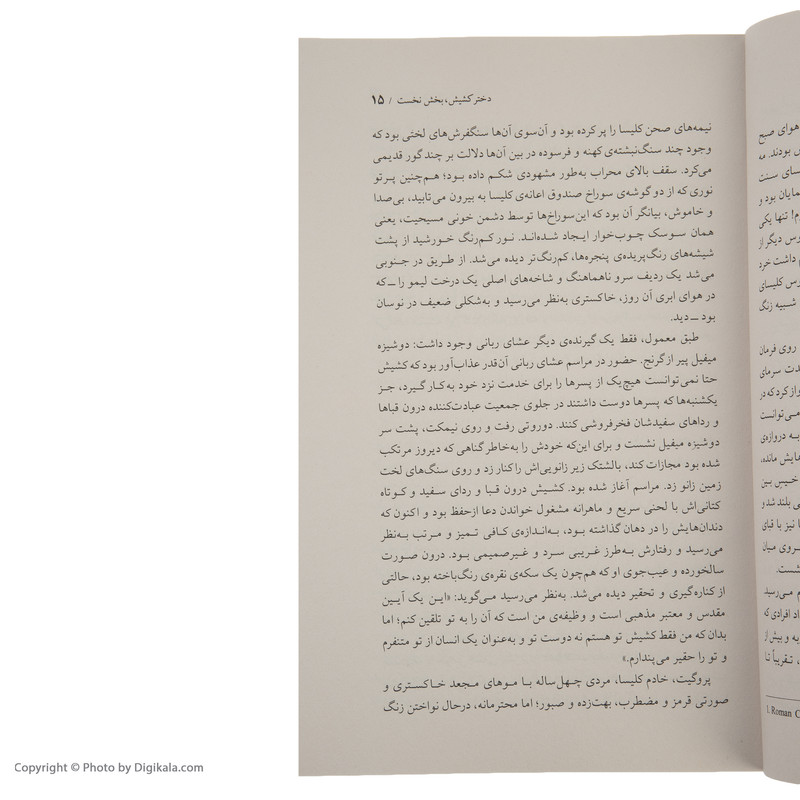 دختر کشیش، بخش نخست / ۱۵
نیمه‌های صحن کلیسا را پر کرده بود و آن‌سوی آن‌ها سنگفرش‌های لختی بود که
وجود چند سنگ‌نبشته‌ی کهنه و فرسوده در بین آن‌ها دلالت بر چند گور قدیمی
می‌کرد. سقف بالای محراب به‌طور مشهودی شکم داده بود؛ هم‌چنین پرتو
نوری که از دو گوشه‌ی سوراخ صندوق اعانه‌ی کلیسا به بیرون می‌تابید، بی‌صدا
و خاموش، بیانگر آن بود که این سوراخ‌ها توسط دشمن خونی مسیحیت، یعنی
همان سوسک چوب‌خوار ایجاد شده‌اند. نور کم‌رنگ خورشید از پشت
شیشه‌های رنگ‌پریده‌ی پنجره‌ها، کم‌رنگ‌تر دیده می‌شد. از طریق در جنوبی
می‌شد یک ردیف سرو ناهماهنگ و شاخه‌های اصلی یک درخت لیمو را ــ که
در هوای ابری آن روز، خاکستری به‌نظر می‌رسید و به‌شکلی ضعیف در نوسان
بود ــ دید.
طبق معمول، فقط یک گیرنده‌ی دیگر عشای ربانی وجود داشت: دوشیزه
میفیل پیر از گرنج. حضور در مراسم عشای ربانی آن‌قدر عذاب‌آور بود که کشیش
حتا نمی‌توانست هیچ‌یک از پسرها را برای خدمت نزد خود به‌کار گیرد، جز
یکشنبه‌ها که پسرها دوست داشتند در جلوی جمعیت عبادت‌کننده درون قباها
و رداهای سفیدشان فخرفروشی کنند. دوروتی رفت و روی نیمکت، پشت سر
دوشیزه میفیل نشست و برای این‌که خودش را به‌خاطر گناهی که دیروز مرتکب
شده بود مجازات کند، بالشتک زیر زانویی‌اش را کنار زد و روی سنگ‌های لخت
زمین زانو زد. مراسم آغاز شده بود. کشیش درون قبا و ردای سفید و کوتاه
کتانی‌اش با لحنی سریع و ماهرانه مشغول خواندن دعا ازحفظ بود و اکنون که
دندان‌هایش را در دهان گذاشته بود، به‌اندازه‌ی کافی تمیز و مرتب به‌نظر
می‌رسید و رفتارش به‌طرز غریبی سرد و غیرصمیمی بود. درون صورت
سالخورده و عیب‌جوی او که هم‌چون یک سکه‌ی نقره‌ی رنگ‌باخته بود، حالتی
از کناره‌گیری و تحقیر دیده می‌شد. به‌نظر می‌رسید می‌گوید: «این یک آیین
مقدس و معتبر مذهبی است و وظیفه‌ی من است که آن را به تو تلقین کنم؛ اما
بدان که من فقط کشیش تو هستم نه دوست تو و به‌عنوان یک انسان از تو متنفرم
و تو را حقیر می‌پندارم.»
پروگیت، خادم کلیسا، مردی چهل‌ساله با موهای مجعد خاکستری و
صورتی قرمز و مضطرب، بهت‌زده و صبور؛ اما محترمانه، درحال نواختن زنگ
هوای صبح
بودند. مه
سای سنت
نمایان بود و
تنها یکی
رس دیگر از
داشت خرد
رس کلیسای
شبیه زنگ
روی فرمان
دت سرمای
واز کرد که در
می‌توانست
به دروازه‌ی
هایش مانده،
خیس بین
بلند شد و
نیز با قبای
روی میان
شست.
م می‌رسید
اد افرادی که
یه و بیش از
، تقریباً تا
1. Roman C
Copyright © Photo by Digikala.com